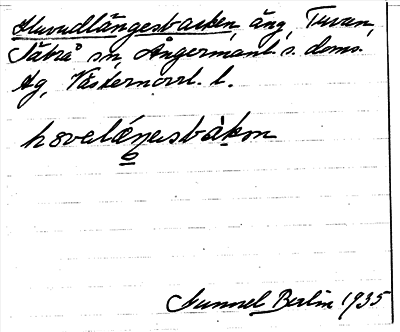 Huvudlångesbacken, äng, Tuvan,
Säbrå sn, Ångermanl. s. doms.
tg, Västernorrl. l.
hovelåŋesbàkon
Gunnel Berlin 1935